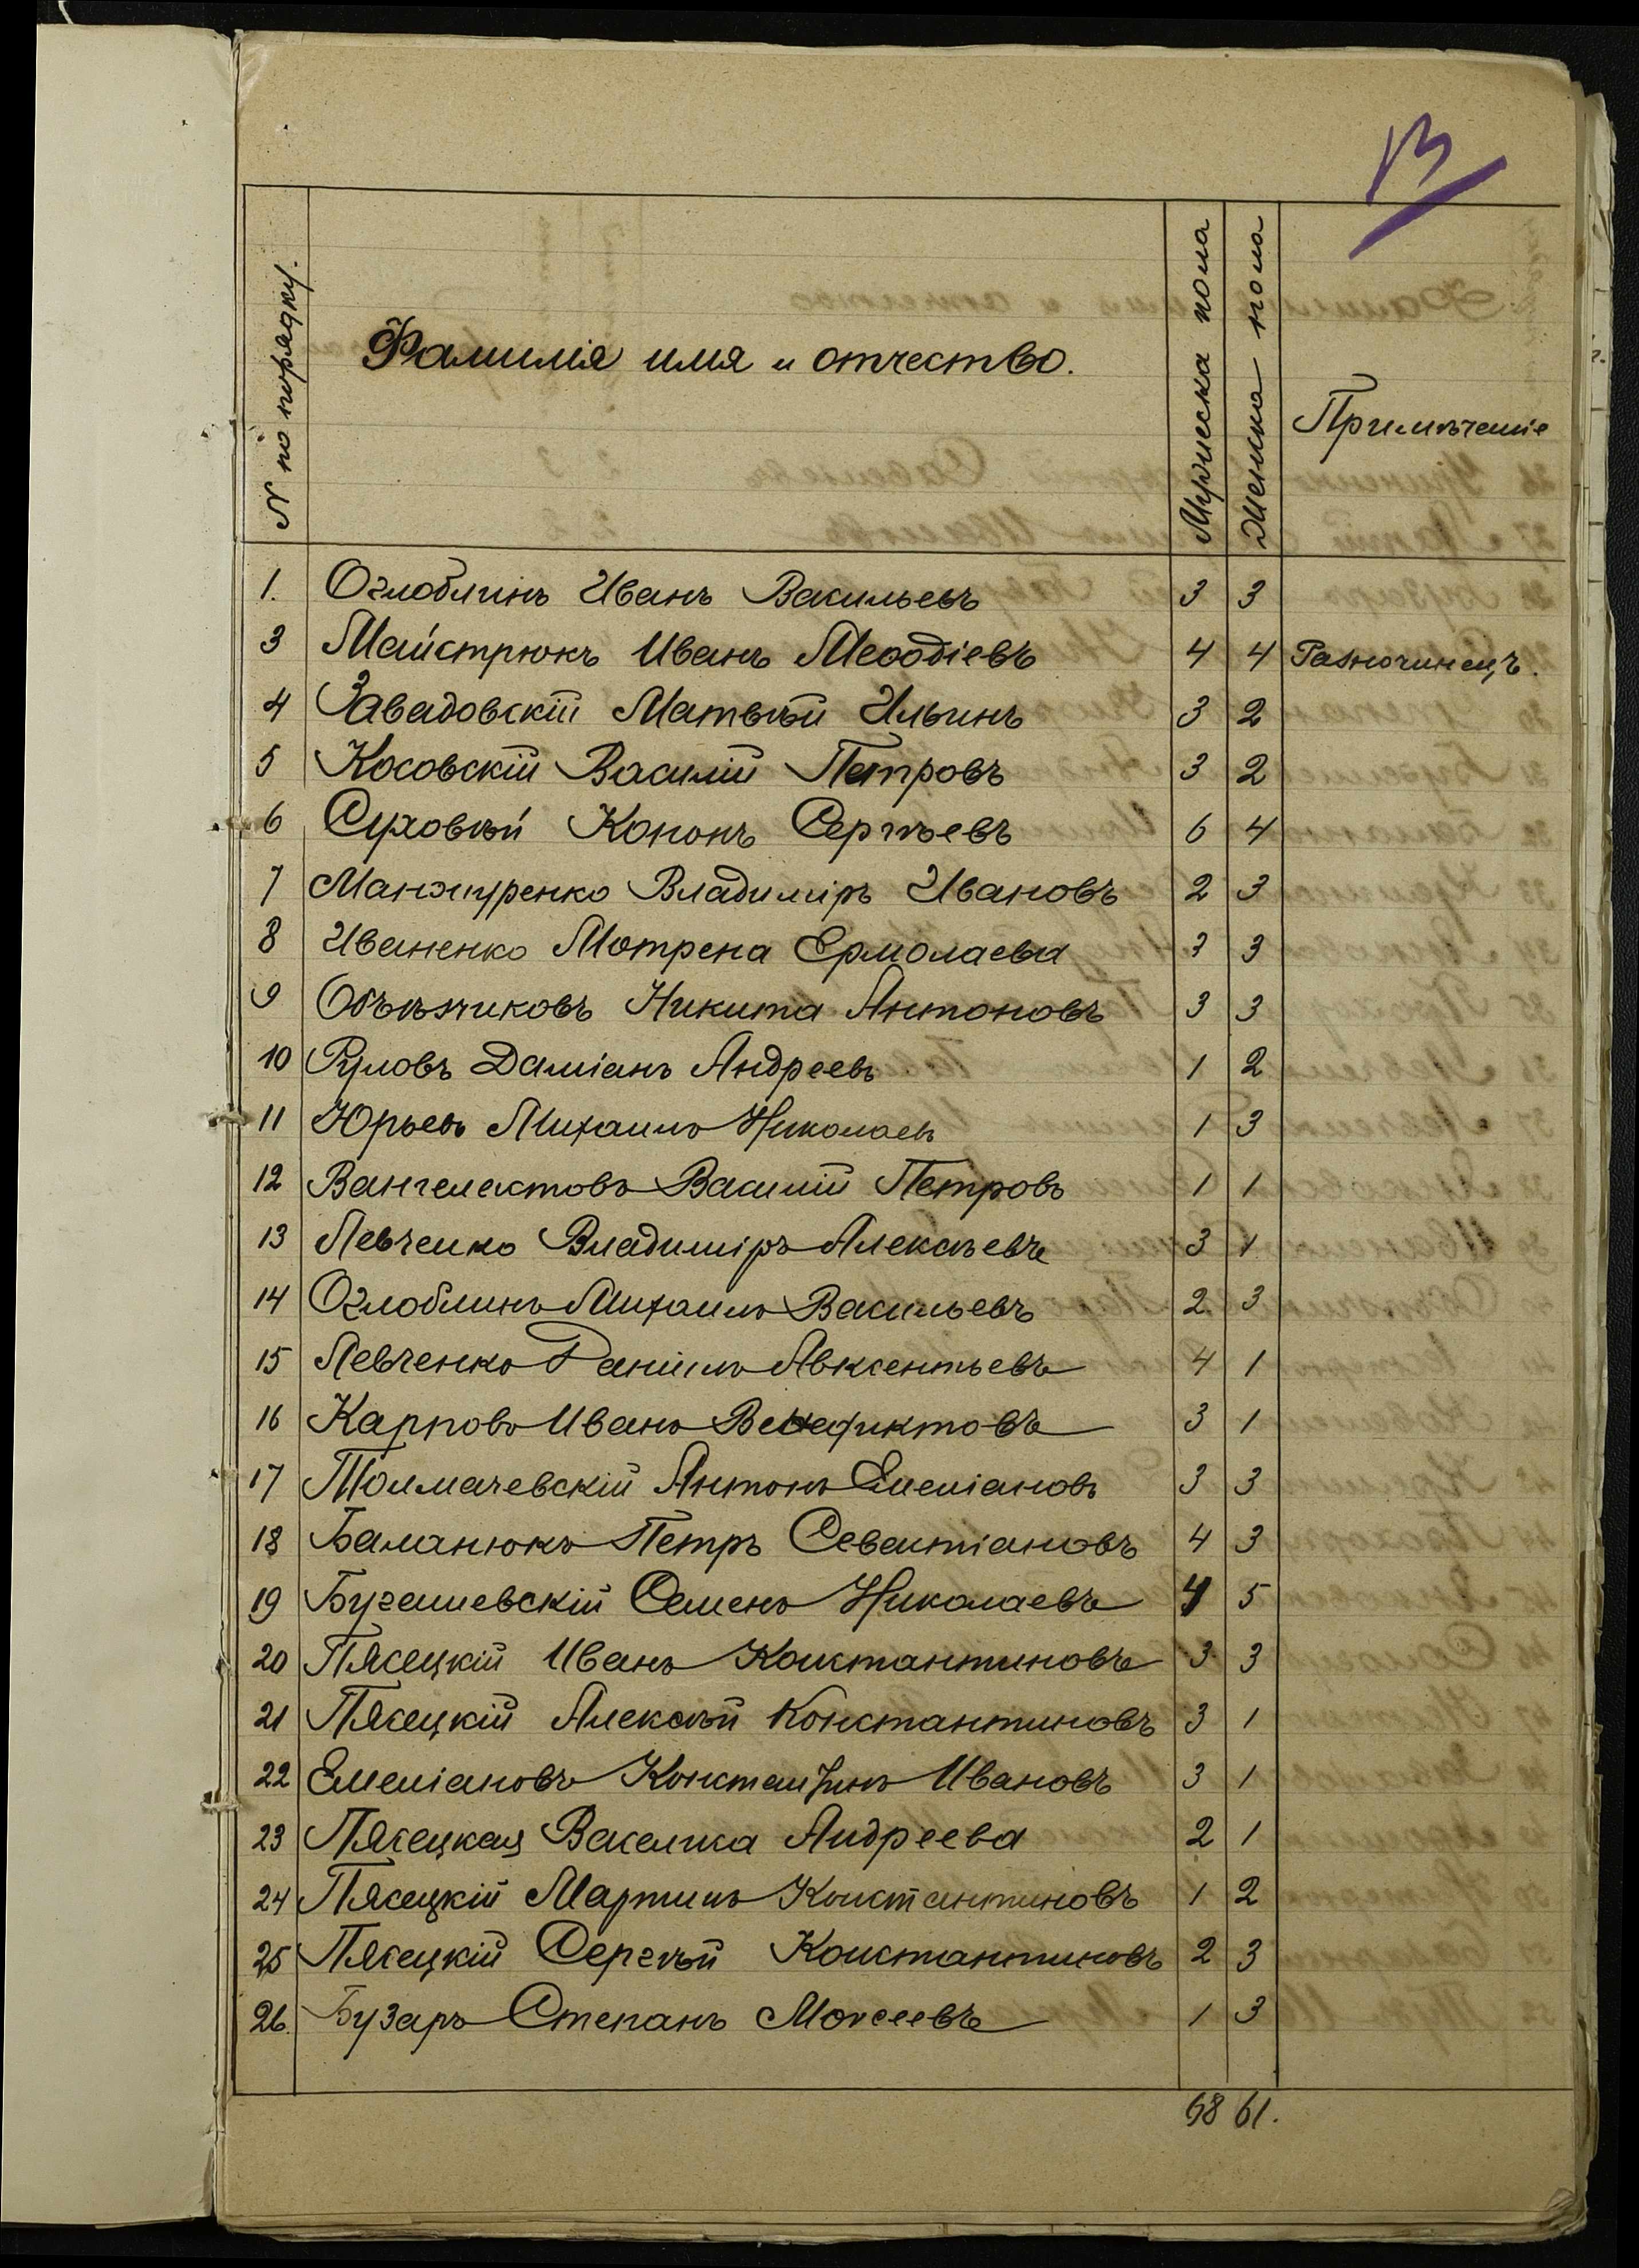 13
№ по порядку.
Фамилія имя и отчество.
Мужеска пола
Женска пола
Примѣчаніе
1. Оглоблинъ Иванъ Васильевъ 3 3
3 Майстрюкъ Иванъ Меѳодіевъ 4 4 Разночинецъ.
4 Завадовскій Матвѣй Ильинъ 3 2
5 Косовскій Василій Петровъ 3 2
6 Суховѣй Кононъ Сергѣевъ 6 4
7 Манжуренко Владиміръ Ивановъ 2 3
8 Иваненко Мотрена Ермолаева 3 3
9 Объѣзчиковъ Никита Антоновъ 3 3
10 Руловъ Даміанъ Андреевъ 1 2
11 Юрьевъ Михаилъ Николаевъ 1 3
12 Вангелектовъ Василій Петровъ 1 1
13 Левченко Владиміръ Алексѣевъ 3 1
14 Оглоблинъ Михаилъ Васильевъ 2 3
15 Левченко Даніилъ Авксентьевъ 4 1
16 Карповъ Иванъ Венедиктовъ 3 1
17 Толмачевскій Антонъ Емеліановъ 3 3
18 Баланюкъ Петръ Севастіановъ 4 3
19 Семенъ Николаевъ 4 5
20 Пясецкій Иванъ Константиновъ 3 3
21 Пясецкій Алексѣй Константиновъ 3 1
22 Емеліановъ Константинъ Ивановъ 3 1
23 Пясецкая Васелиса Андреева 2 1
24 Пясецкій Мартинъ Константиновъ 1 2
25 Пясецкій Сергѣй Константиновъ 2 3
26. Бузаръ Степанъ Моисеевъ 1 3
68 61.